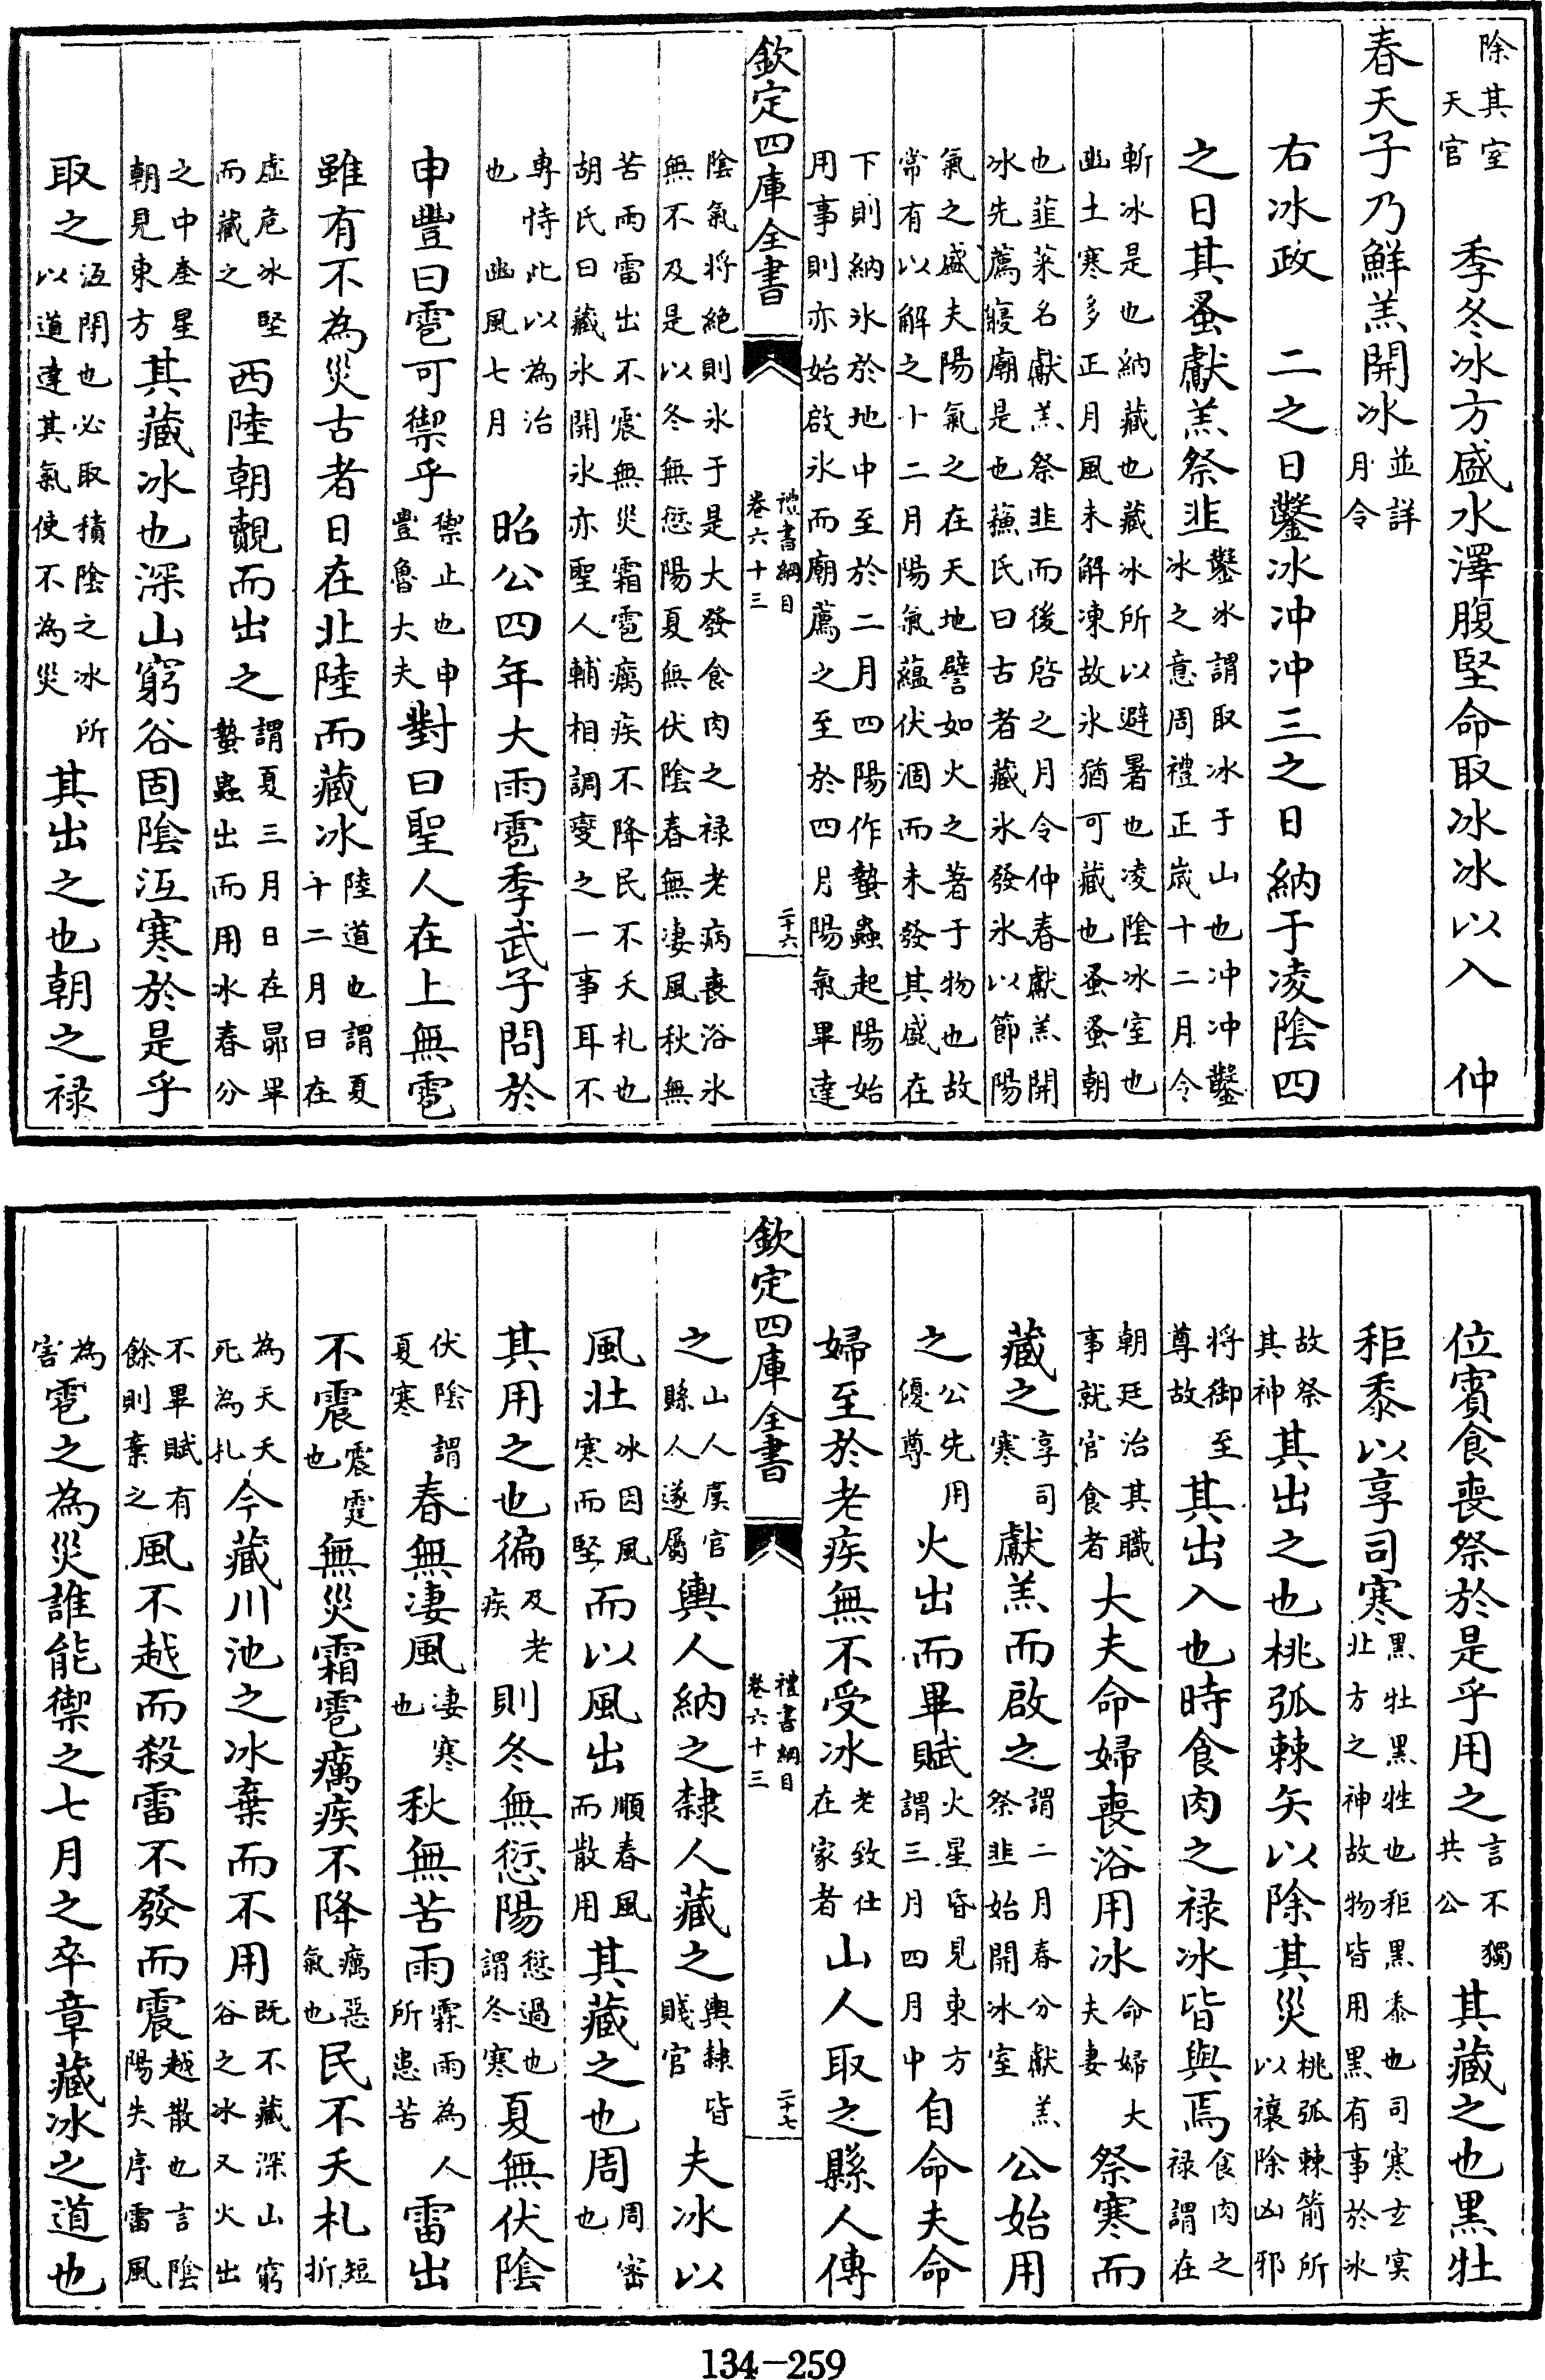 除其室
天官　季冬冰方盛水澤腹堅命取冰冰以入　仲
春天子乃鮮羔開冰並詳月令
右冰政　二之日鑿冰冲冲三之日納于凌陰四
之日其蚤獻羔祭韭鑿冰謂取冰于山也冲冲鑿
冰之意周禮正嵗十二月令
斬冰是也納藏也藏冰所以避暑也凌陰冰室也
豳土寒多正月風未解凍故氷猶可藏也蚤蚤朝
也韮菜名獻羔祭韭而後啓之月令仲春獻羔開
冰先薦寢廟是也蘓氏曰古者藏氷發氷以節陽
氣之盛夫陽氣之在天地譬如火之著于物也故
常有以解之十二月陽氣蘊伏涸而未發其盛在
下則納氷於地中至於二月四陽作蟄蟲起陽始
用事則亦始啟氷而廟薦之至於四月陽氣畢達
欽定四庫全書
禮書綱目
卷六十三
二十六
陰氣将絶則氷于是大發食肉之禄老病喪浴氷
無不及是以冬無愆陽夏無伏陰春無凄風秋無
苦雨雷出不震無災霜雹癘疾不降民不夭札也
胡氏曰藏氷開氷亦聖人輔相調變之一事耳不
專恃此以為治
也　豳風七月　昭公四年大雨雹季武子問於
申豐曰雹可禦乎禦止也申
豐魯大夫對曰聖人在上無雹
雖有不為災古者日在北陸而藏冰陸道也謂夏
十二月日在
虛危冰堅
而藏之西陸朝覿而出之謂夏三月日在昴畢
蟄蟲出而用冰春分
之中奎星
朝見東方其藏冰也深山窮谷固陰沍寒於是乎
取之沍閉也必取積陰之冰所
以道達其氣使不為災其出之也朝之禄
位賓食喪祭於是乎用之言不獨
共公其藏之也黑牡
秬黍以享司寒黑牡黑牲也秬黑黍也司寒玄冥
北方之神故物皆用黑有事於冰
故祭
其神其出之也桃弧棘矢以除其災桃弧棘箭所
以禳除凶邪
将御至
尊故其出入也時食肉之禄冰皆與焉食肉之
禄謂在
朝廷治其職
事就官食者大夫命婦喪浴用冰命婦大
夫妻祭寒而
藏之享司
寒獻羔而啟之謂二月春分獻羔
祭韭始開冰室公始用
之公先用
優尊火出而畢賦火星昏見東方
謂三月四月中自命夫命
婦至於老疾無不受冰老致仕
在家者山人取之縣人傳
欽定四庫全書
禮書綱目
卷六十三
二十七
之山人虞官
縣人遂屬輿人納之隸人藏之輿隸皆
賤官夫冰以
風壯冰因風
寒而堅而以風出順春風
而散用其藏之也周周密
也
其用之也徧及老
疾則冬無愆陽愆過也
謂冬寒夏無伏陰
伏陰謂
夏寒春無凄風凄寒
也秋無苦雨霖雨為人
所患苦雷出
不震震霆
也無災霜雹癘疾不降癘惡
氣也民不夭札短
折
為夭夭
死為札今藏川池之冰棄而不用既不藏深山窮
谷之冰又火出
不畢賦有
餘則棄之風不越而殺雷不發而震越散也言陰
陽失序雷風
為
害雹之為災誰能禦之七月之卒章藏冰之道也
134-259